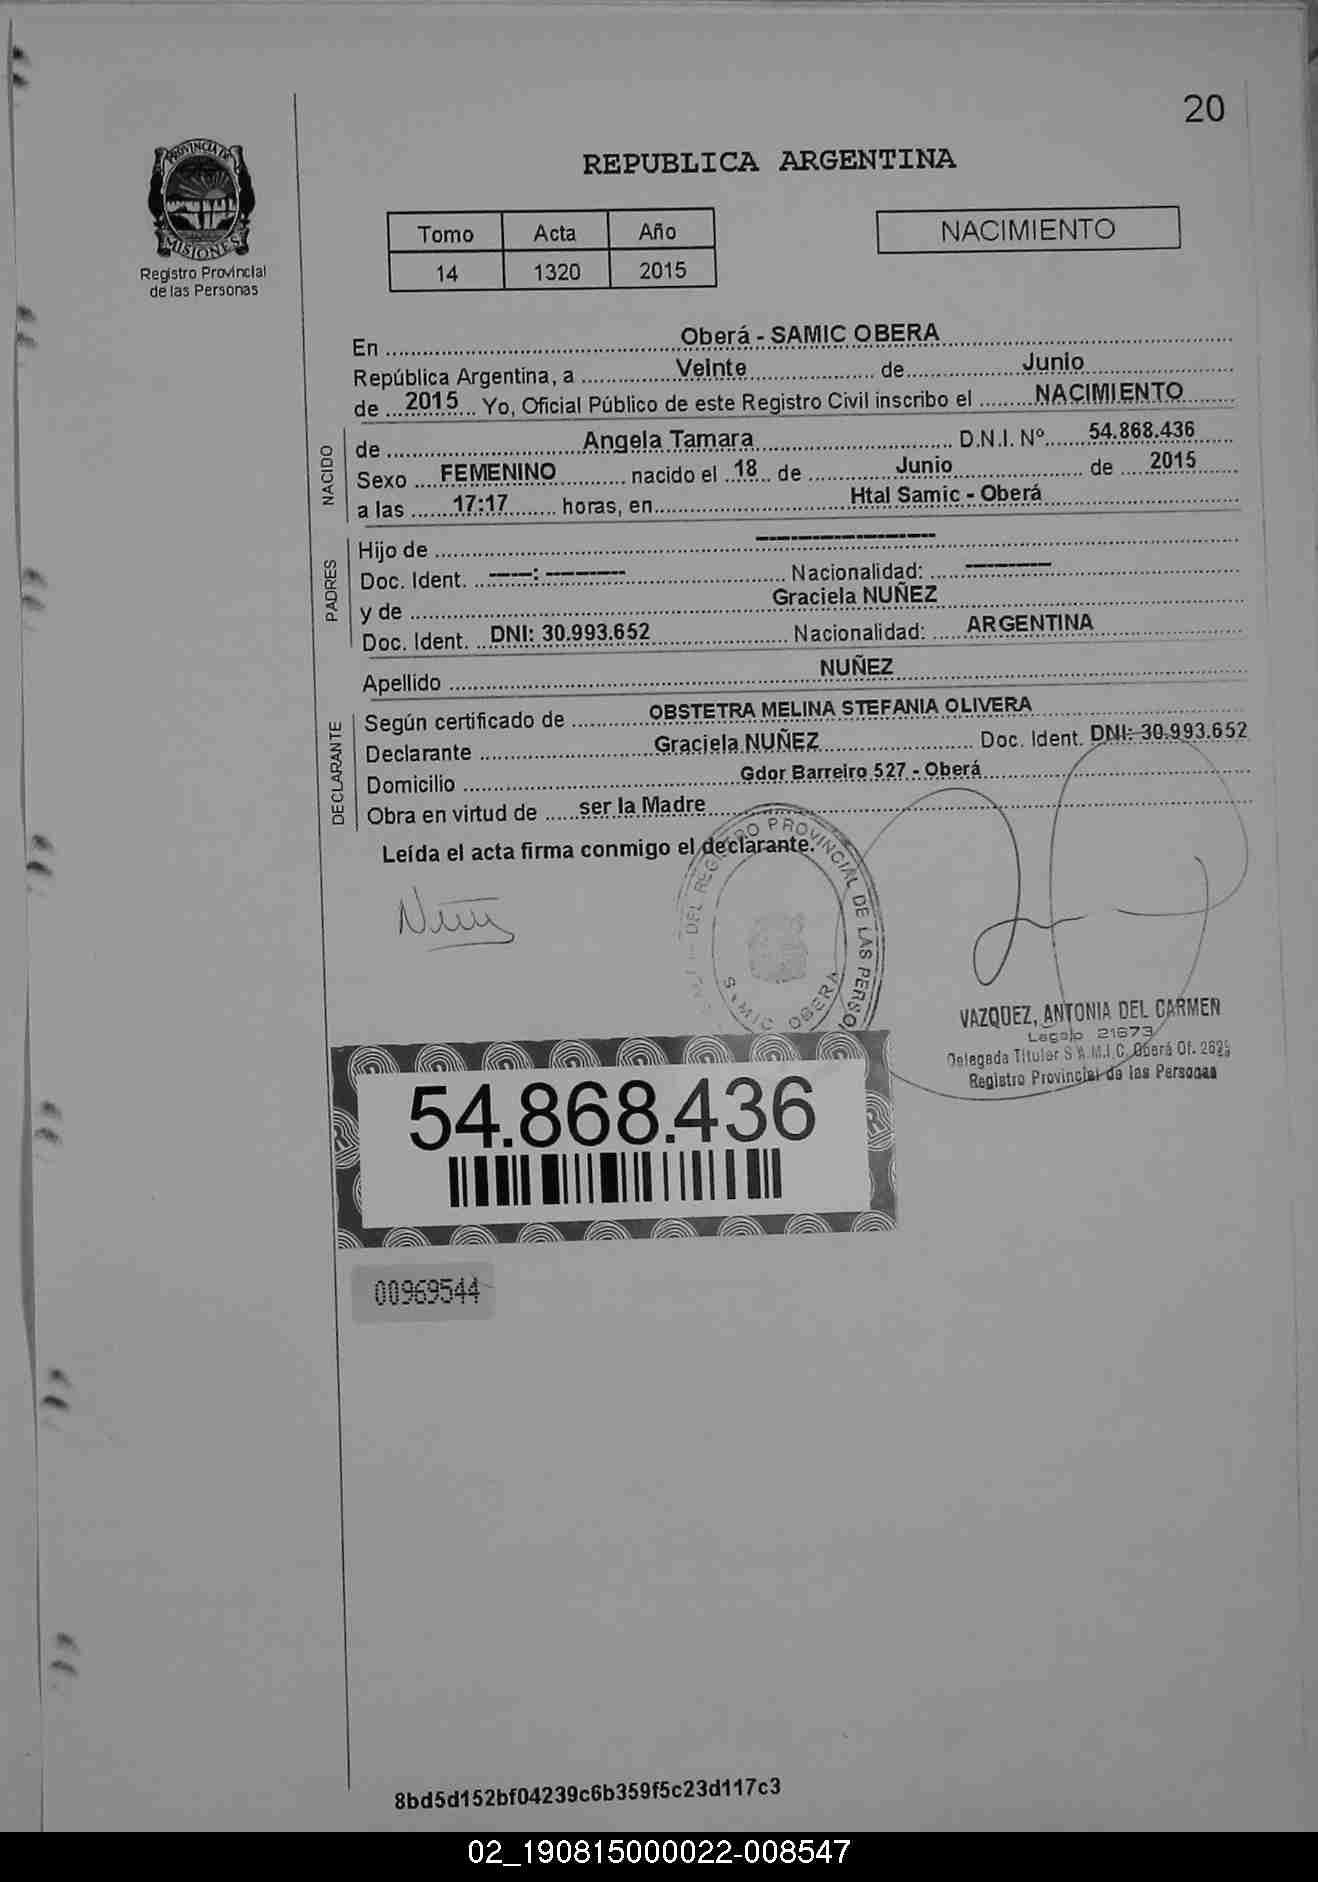 20
PROVINCIA DE
MISIONES
Registro Provincial
de las Personas
REPUBLICA ARGENTINA
Tomo Acta Año
14 1320 2015
NACIMIENTO
En Oberá - SAMIC OBERA
República Argentina, a Veinte de Junio
de 2015 Yo, Oficial Público de este Registro Civil inscribo el NACIMIENTO
NACIDO
de Angela Tamara D.N.I. Nº 54.868.436
Sexo FEMENINO nacido el 18 de Junio de 2015
a las 17:17 horas, en Htal Samic - Oberá
PADRES
Hijo de --------------------
Doc. Ident. -----: --------- Nacionalidad: ----------
y de Graciela NUÑEZ
Doc. Ident. DNI: 30.993.652 Nacionalidad: ARGENTINA
Apellido NUÑEZ
DECLARANTE
Según certificado de OBSTETRA MELINA STEFANIA OLIVERA
Declarante Graciela NUÑEZ Doc. Ident. DNI: 30.993.652
Domicilio Gdor Barreiro 527 - Oberá
Obra en virtud de ser la Madre
Leída el acta firma conmigo el declarante.
DEL REGISTRO PROVINCIAL DE LAS PERSO
SAMIC OBERA
VAZQUEZ, ANTONIA DEL CARMEN
Legajo 21673
Delegada Titular S.A.M.I.C. Oberá Of. 
Registro Provincial de las Personas
54.868.436
00969544
8bd5d152bf04239c6b359f5c23d117c3
02_190815000022-008547